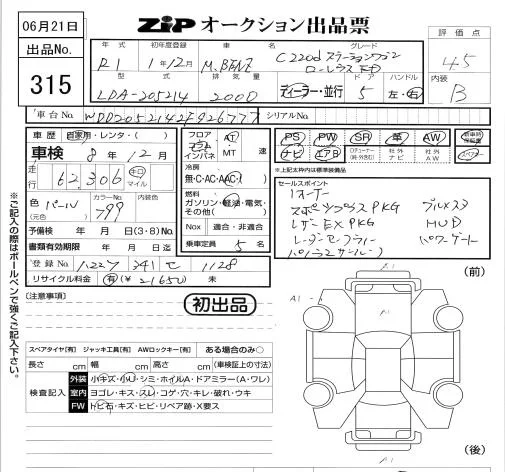 06月21日
ZiP オークション出品票
出品No.
315
年式 初年度登録 車名 グレード
R1 1年12月 M.BENZ C220d ステーションワゴン
ローレウス ED
型式 排気量 ドア ハンドル
LDA-205214 2000 ディーラー・並行 5 左・右
評価点
4.5
内装
B
車台No. WDD2052142F926777 シリアルNo.
車歴 自家用・レンタ・( )
車検 8年12月
走行 62,306 キロ マイル
色(元色) パール カラーNo. 799 内装色
予備検 年 月 日(3・8)No.
書類有効期限 年 月 日迄
登録No.
341 1128
リサイクル料金 有(¥ 21650) 未
フロア コラム インパネ AT ・MT 速
冷房 無・C・AC・AAC
燃料 ガソリン・軽油・電気・その他( )
Nox 適合・非適合
乗車定員 5 名
PS PW SR 革 AW 新車時保証書
ナビ エアB TVチューナー(地外含む) 社外ナビ 社外AW スペアキー
※上記太枠内は標準装備品
セールスポイント
1オーナー
スポーツプラスPKG ブルメスタ
レザーEX PKG HUD
レーダーセーフティー パワーゲート
パノラミックサンルーフ
[注意事項]
初出品
(前)
A1
A1
A1
(後)
スペアタイヤ[有] ジャッキ工具[有] AWロックキー[有] ある場合のみ○
長さ cm 幅 cm 高さ cm (車検証上の寸法)
検査記入
外装 小キズ・小U・シミ・ホイルA・ドアミラー(A・ワレ)
室内 ヨゴレ・キズ・スレ・コゲ・穴・キレ・破れ・ウキ
FW トビ石・キズ・ヒビ・リペア跡・X要ス
※ご記入の際はボールペンで強くご記入下さい。